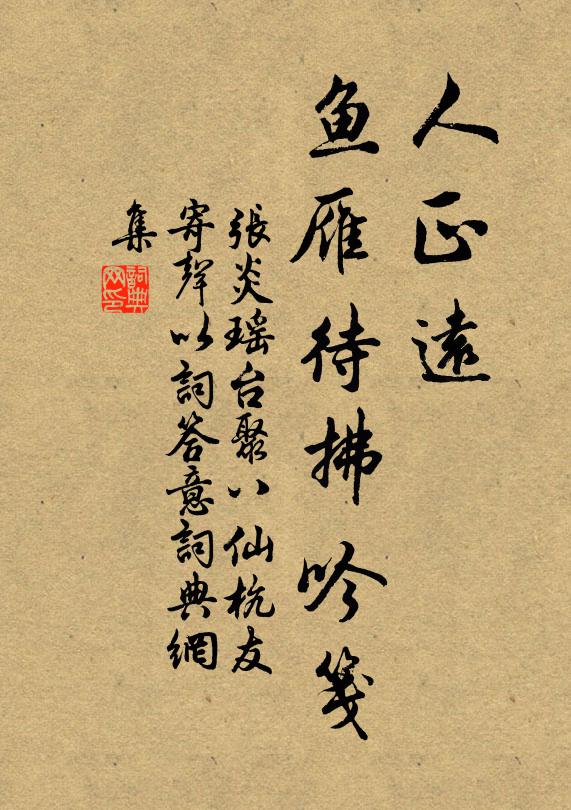 人正遠
鱼雁待拂吟箋
張炎瑶台聚八仙杭友
寄聲以詞答意詞典網
集
詞典网印